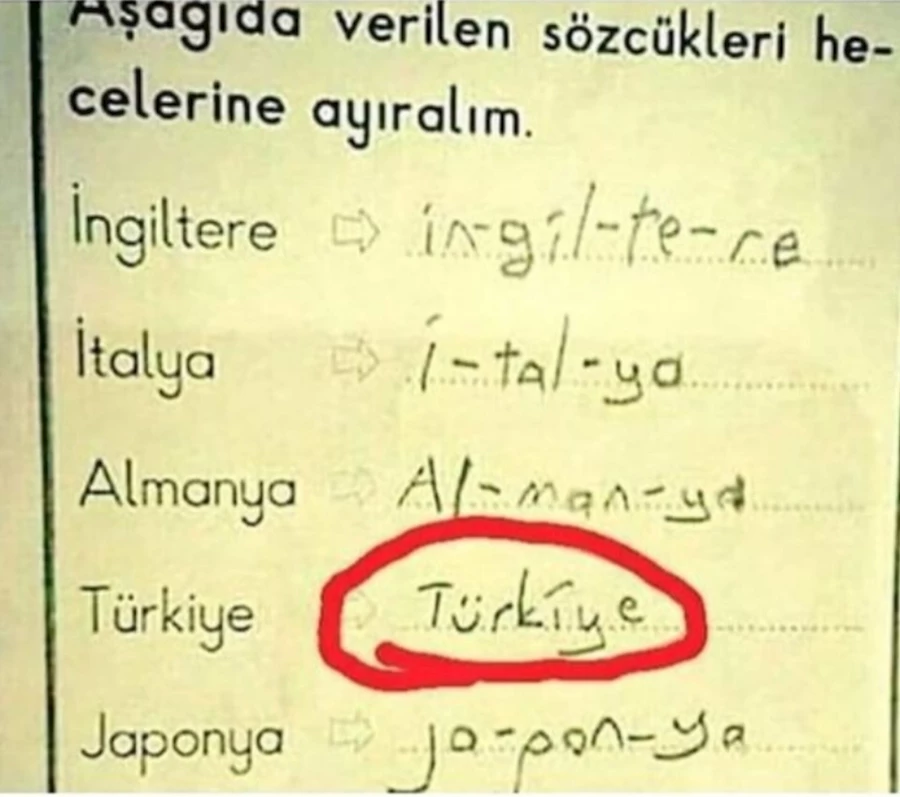 Aşağıda verilen sözcükleri he-
celerine ayıralım.
İngiltere in-gil-te-re
İtalya İ-tal-ya
Almanya Al-man-ya
Türkiye Türkiye
Japonya Ja-pon-ya